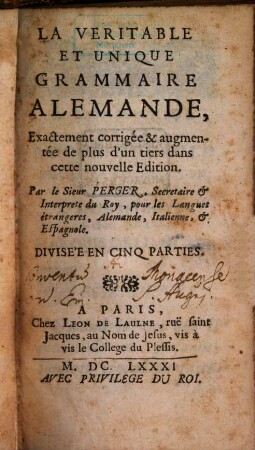 LA VERITABLE
ET UNIQUE
GRAMMAIRE
ALEMANDE,
Exactement corrigée & augmen-
tée de plus d'un tiers dans
cette nouvelle Edition.
Par le Sieur PERGER, Secretaire &
Interprete du Roy, pour les Langues
étrangeres, Alemande, Italienne, &
Espagnole.
DIVISE'E EN CINQ PARTIES.
A PARIS,
Chez LEON DE LAULNE, ruë saint
Jacques, au Nom de Jesus, vis à
vis le College du Plessis.
M. DC. LXXXI
AVEC PRIVILEGE DU ROI.